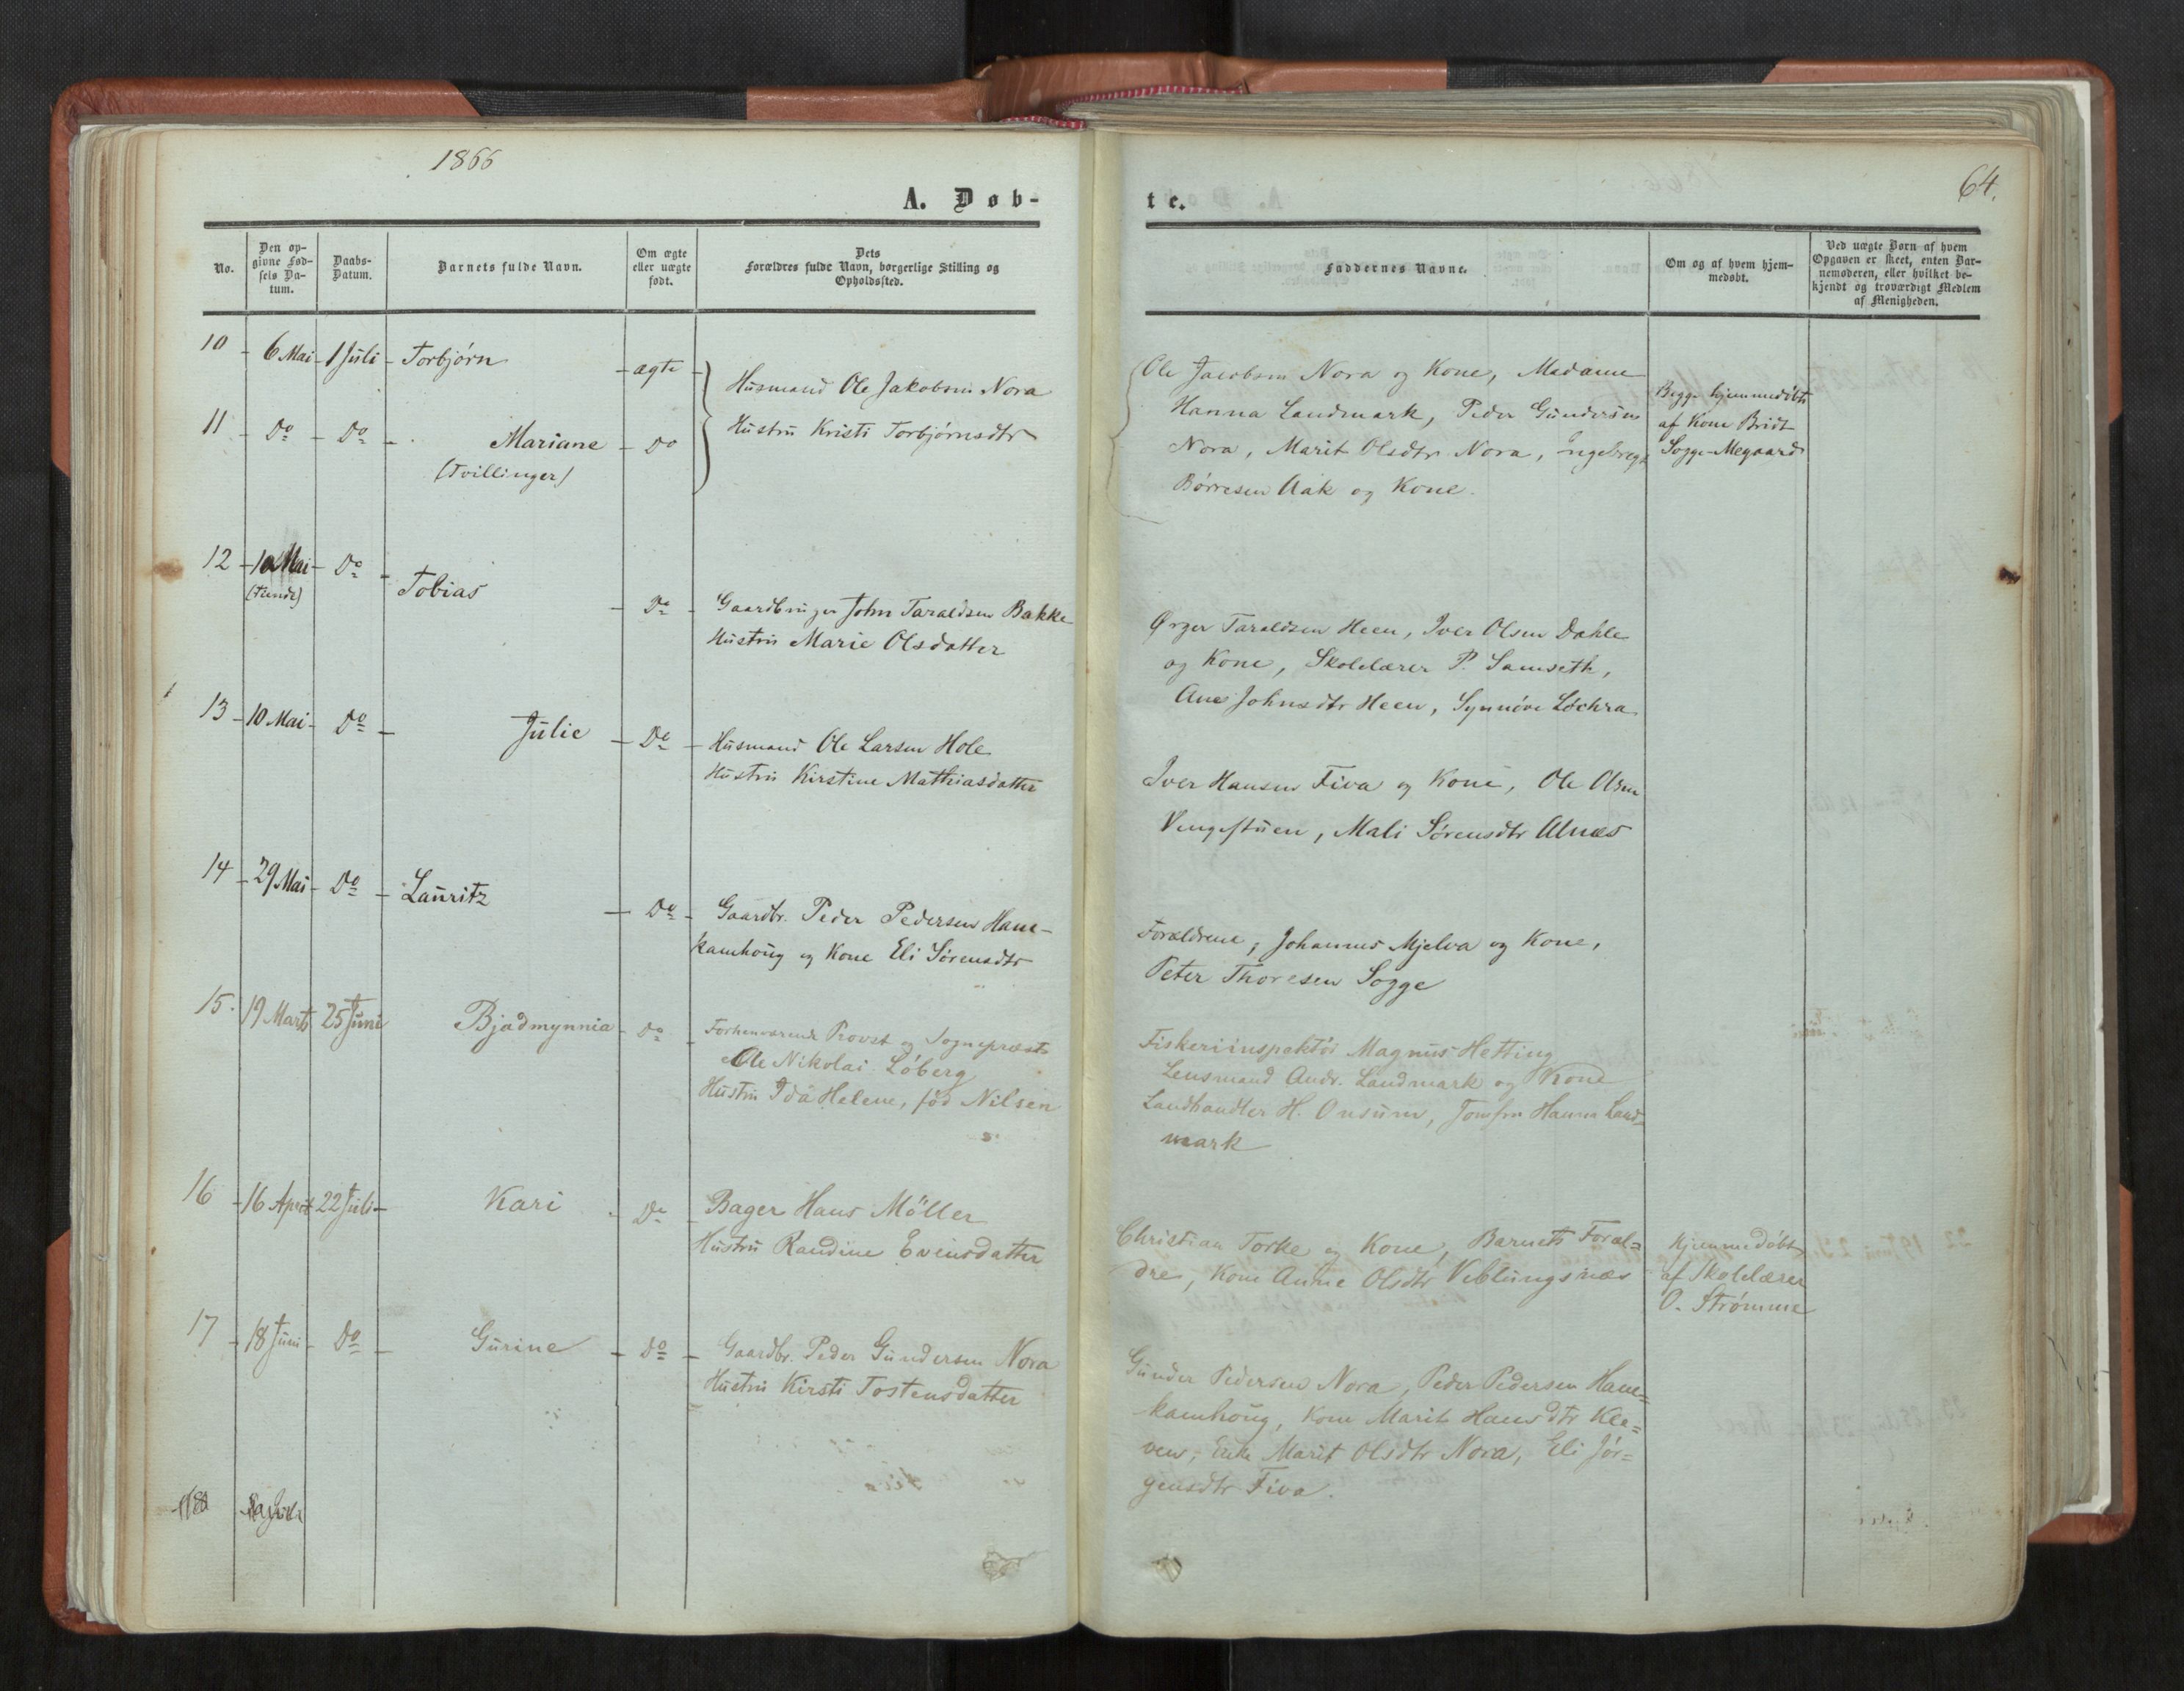 1866
64.
A. Døb-
te.
No.
Den op-
givne Fød-
sels Da-
tum.
Daabs-
Datum.
Barnets fulde Navn.
Om ægte
eller uægte
født.
Dets
Forældres fulde Navn, borgerlige Stilling og
Opholdssted.
Faddernes Navne.
Om og af hvem hjem-
medøbt.
Ved uægte Børn af hvem
Opgaven er skeet, enten Bar-
nemoderen, eller hvilket be-
kjendt og troværdigt Medlem
af Menigheden.
10 - 6 Mai - 1 Juli - Torbjørn - ægte -
11 - Do - Do - Mariane - Do
(Tvillinger)
Husmand Ole Jakobsen Nora
Hustru Kristi Torbjørnsdtr
Ole Jacobsen Nora og Kone, Madame
Hanna Landmark, Peder Gundersen
Nora, Marit Olsdtr Nora, Engebregt
Børresen Aak og Kone.
Begge hjemmedøbte
af Kone Bridt
Sogge-Megaard
12 - 10 Mai - Do - Tobias - Do -
(Tiende)
Gaardbruger John Taraldsen Bakke
Hustru Marie Olsdatter
Ørger Taraldsen Heen, Iver Olsen Dahle
og Kone, Skolelærer P. Samseth,
Ane Johnsdtr Heen, Synnøve Løchra
13 - 10 Mai - Do - Julie - Do -
Husmand Ole Larsen Hole
Hustru Kirstine Mathiasdatter
Iver Hansen Fiva og Kone, Ole Olsen
Vengestuen, Mali Sørensdtr Alnæs
14 - 29 Mai - Do - Lauritz - Do -
Gaardbr. Peder Pedersen Hane-
kamhoug og Kone Eli Sørensdtr
Forældrene, Johannes Mjelva og Kone,
Peter Thoresen Sogge
15. 19 Marts 25 Juni Bjadmynnia - Do -
Forhenværende Provst og Sognepræst
Ole Nikolai Løberg
Hustru Ida Helene, fød Nilsen
Fiskeriinspektør Magnus Hetting
Lensmand Andr. Landmark og Kone
Landhandler H. Onsum, Jomfru Hanna Land-
mark
16 - 16 April 22 Juli - Kari - Do -
Bager Hans Möller
Hustru Randine Evensdatter
Christian Torke og Kone, Barnets Foræl=
dre, Kone Anne Olsdtr Veblungsnæs
Hjemmedøbt
af Skolelærer
O. Strømme
17 - 18 Juni - Do - Gurine - Do -
Gaardbr. Peder Gundersen Nora
Hustru Kirsti Tostensdatter
Gunder Pedersen Nora, Peder Pedersen Hane=
kamhoug, Kone Marit Hansdtr Kle=
ven, Enke Marit Olsdtr Nora, Eli Jør=
gensdtr Fiva.
18